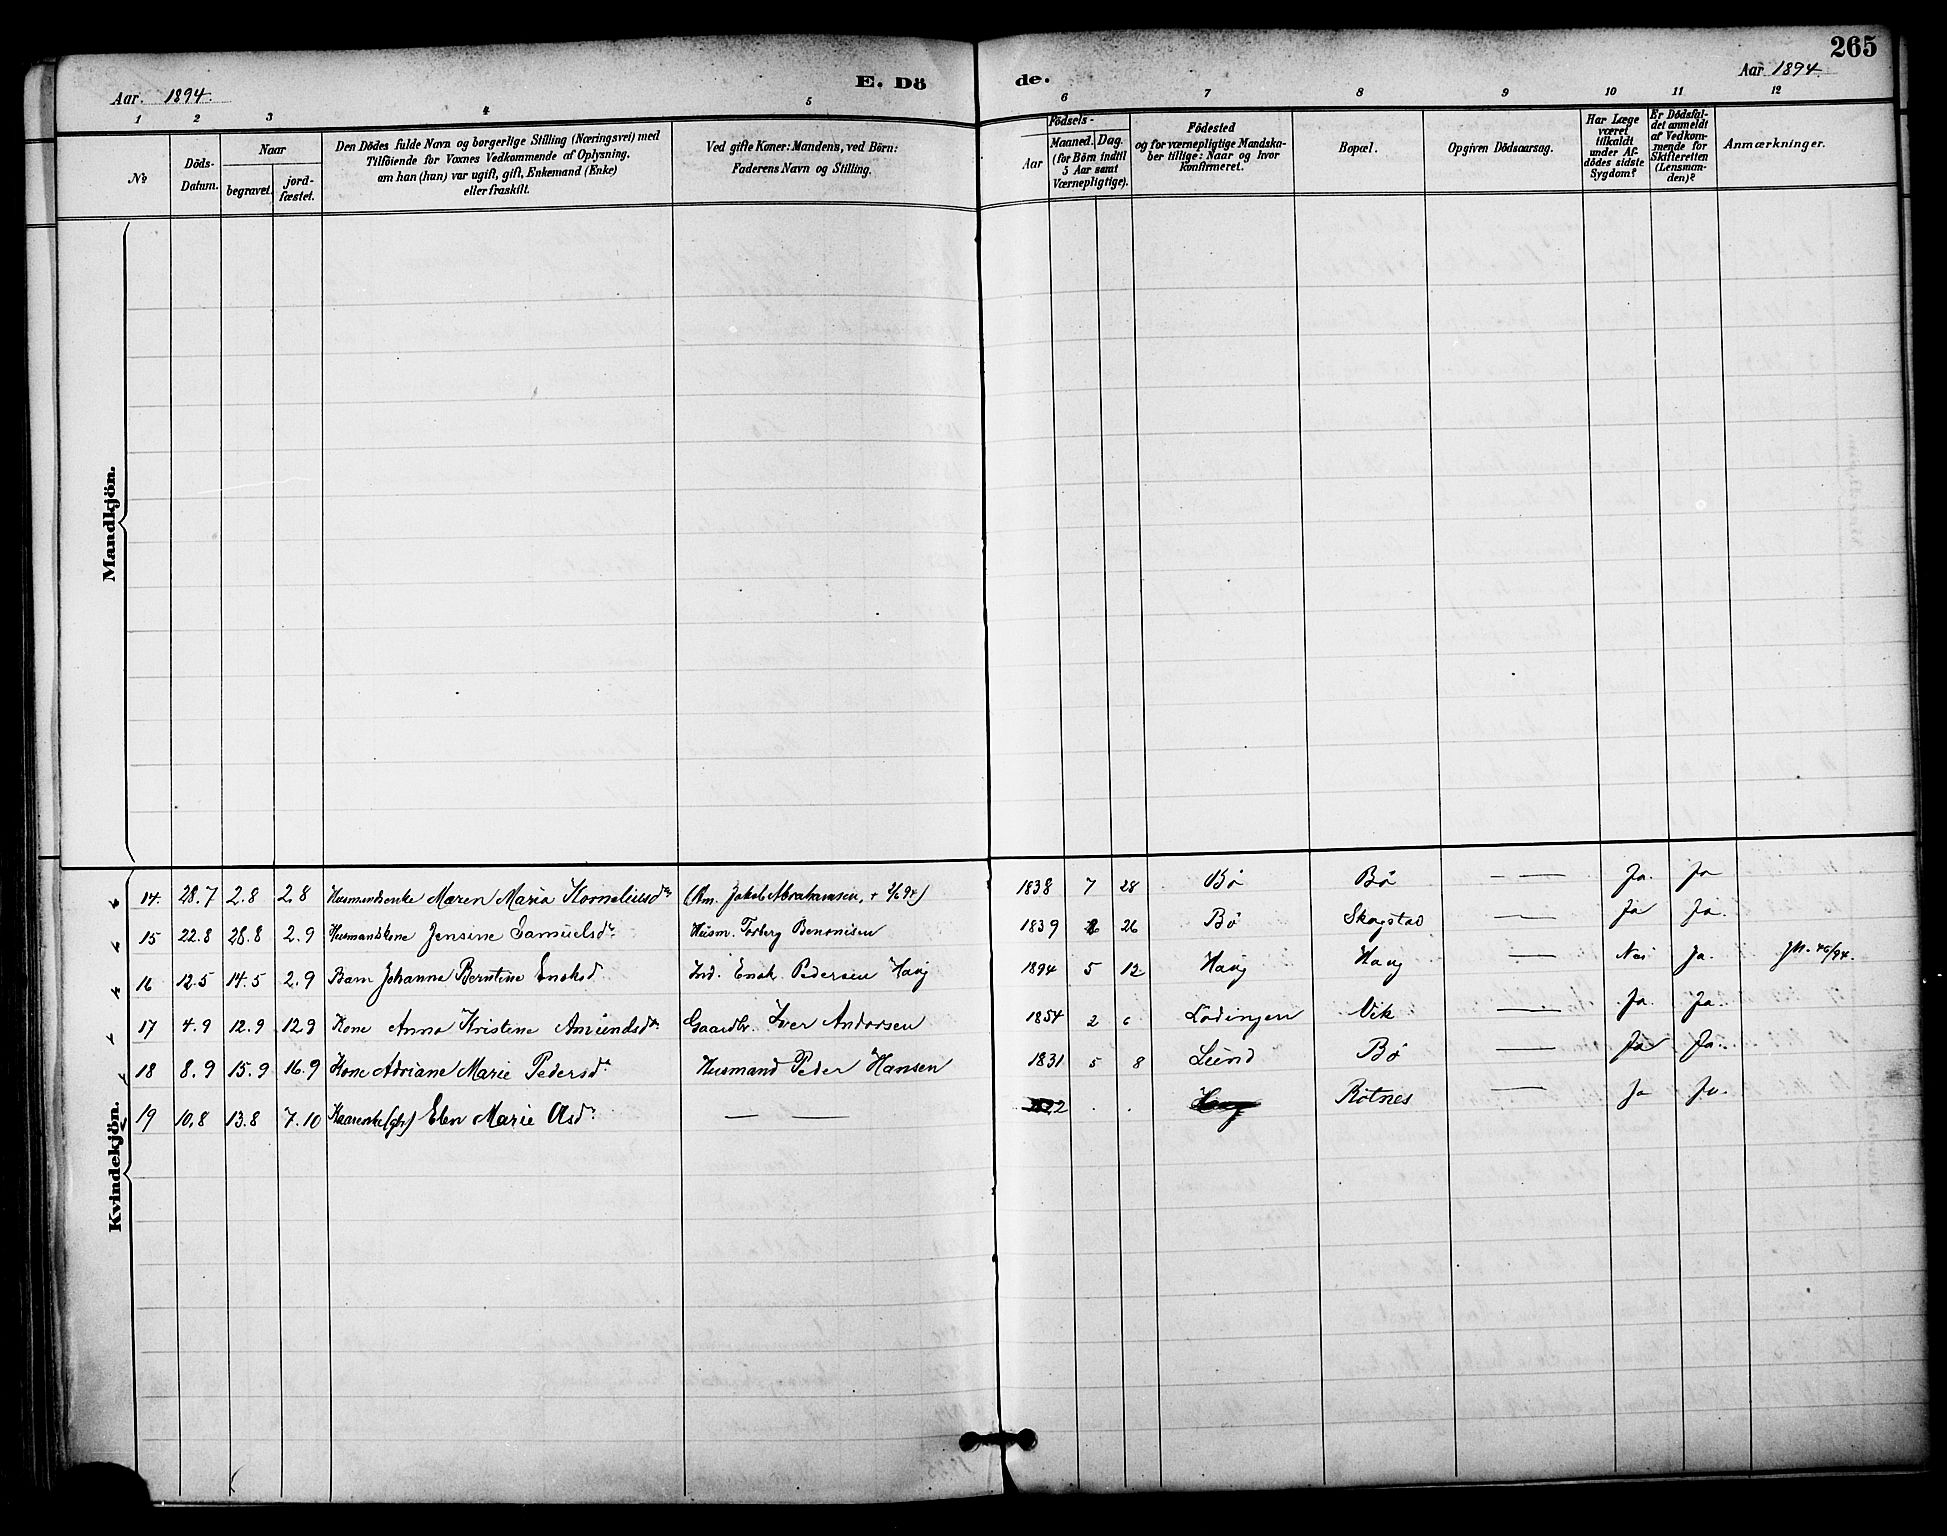 265
E. Dö de.
Aar. 1894.
Aar 1894.
1 2 3 4 5 6 7 8 9 10 11 12
№
Döds-Datum.
Naar
begravet.
jordfæstet.
Den Dödes fulde Navn og borgerlige Stilling (Næringsvei) med
Tilföiende for Voxnes Vedkommende af Oplysning.
om han (hun) var ugift, gift, Enkemand (Enke)
eller fraskilt.
Ved gifte Koner: Mandens, ved Börn:
Faderens Navn og Stilling.
Födsels-
Aar
Maaned.
Dag.
(for Börn indtil
5 Aar samt
Værnepligtige).
Födested
og for værnepligtige Mandska-
ber tillige: Naar og hvor
konfirmeret.
Bopæl.
Opgiven Dödsaarsag.
Har Læge
været
tilkaldt
under Af-
dödes sidste
Sygdom?
Er Dödsfal-
det anmeldt
af Vedkom-
mende for
Skifteretten
(Lensman-
den)?
Anmærkninger.
Mandkjön.
Kvindekjön.
14. 28.7 2.8 2.8 Husmandsenke Maren Maria Korneliusdr (Hm. Jakob Abrahamsen, + 2/6 94) 1838 7 28 Bö Bö — — Ja. Ja
15 22.8 28.8 2.9 Husmandskone Jensine Samuelsdr. Husm. Torberg Benonisen 1839 26 Bö Skogstad — Ja Ja.
16 12.5 14.5 2.9 Barn Johanna Berntine Enoksd. Ind. Enok Pedersen Haug 1894 5 12 Haug Haug — Nei Ja. 46/94.
17 4.9 12.9 12.9 Kone Anna Kristine Amundsdr. Gaardbr. Iver Andorsen 1854 2 6 Lödingen Vik — Ja. Ja.
18 8.9 15.9 16.9 Kone Adriane Marie Pedersdr. Husmand Peder Hansen 1831 5 8 Lund Bö — Ja Ja.
19 10.8 13.8 7.10 Elen Marie Olsd. — — . . Haug Rotnes — Ja Ja.